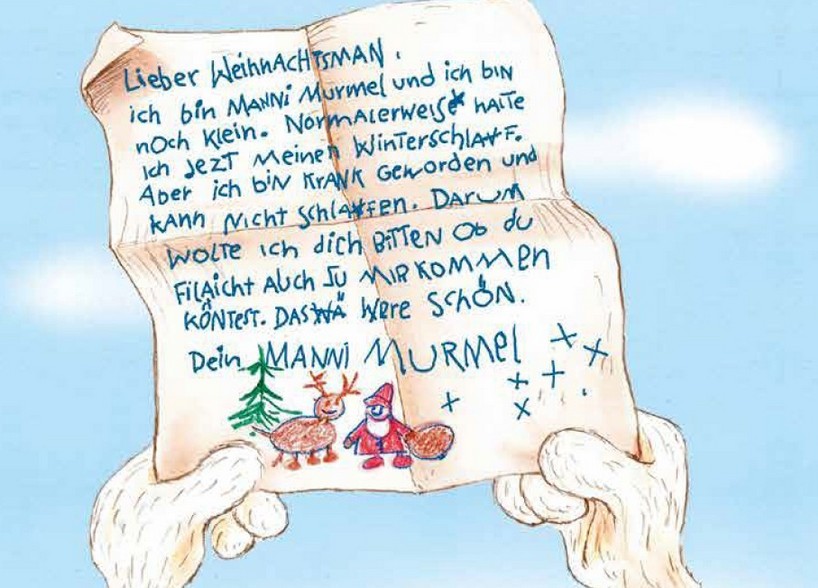 Lieber WeihnAcHTsMAN.
ich bin MANNi Murmel und ich biN
nOch Klein. NorMALerweise HALTe
Ich JeZT Meinen WinTerschlAF.
Aber ich biN KrANK GeWorden und
KANN Nicht SchlAfen. DAruM
WOLTe ich dich BiTTEN Ob du
FilAicht AUch ZU MiR KOMMEN
KÖNTesT. DAS WÄ Were SchÖN.
Dein MANNi MURMel